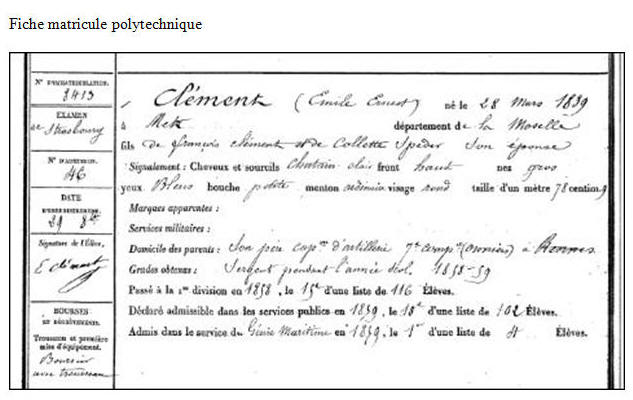 Fiche matricule polytechnique
N° D'IMMATRICULATION.
8413
EXAMEN
de Strasbourg
N° D'ADMISSION.
46
DATE
29 8bre
Signature de l'Élève,
E Clément
BOURSES
Trousseau et première
mise d'équipement.
Boursier
avec trousseau
Clément (Emile Ernest) né le 28 Mars 1839
à Metz département de la Moselle
fils de françois Clément et de Collette Speder Son épouse
Signalement : Cheveux et sourcils Chatain clair front haut nez gros
yeux Bleus bouche petite menton visage rond taille d'un mètre 78 centim.
Marques apparentes :
Services militaires :
Domicile des parents : Son père capne d'artillerie 7e comp (ouvriers) à Rennes
Grades obtenus : Sergent pendant l'année scol. 1858-59
Passé à la 1re division en 1858, le 15e d'une liste de 116 Élèves.
Déclaré admissible dans les services publics en 1859, le 18e d'une liste de 102 Élèves.
Admis dans le service du Génie Maritime en 1859, le 1er d'une liste de 4 Élèves.